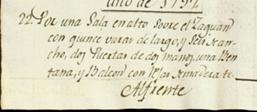 uno de 1792
22 Por una Sala en alto Sobre el Zaguan
con quince varas de largo, y Seis de an-
cho, dos Puertas de dos manos, una Ven-
tana, y Balcon con
Al frente